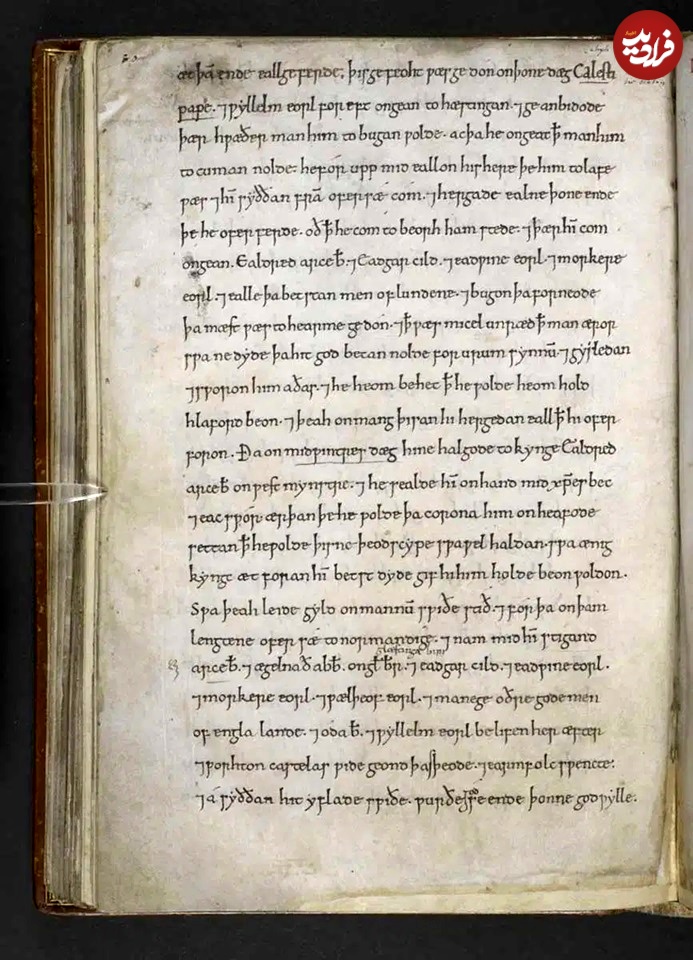 فرادید
æt þā ende eall geferde; þis gefeoht ƿæs gedon on þone dæg Calesti
pape. ⁊ Ƿyllelm eorl for eft ongean to hæstingan. ⁊ geanbidode
þær hƿæðer man him to bugan ƿolde. ac þa he ongeat ꝥ man him
to cuman nolde. he for upp mid eallon his here þe him to lafe
ƿæs ⁊ hī syððan frā ofer sæ com. ⁊ hergade ealne þone ende
þe he ofer ferde. oð ꝥ he com to beorh ham stede. ⁊ þær hī com
ongean. Ealdred arceƀ. ⁊ Eadgar cild. ⁊ eadƿine eorl. ⁊ morkere
eorl. ⁊ ealle þa betstan men of lundene. ⁊ bugon þa for neode
þa mæst ƿæs to hearme gedon. ⁊ ꝥ ƿæs micel unræd ꝥ man æror
sƿa ne dyde þa hit god betan nolde for urum synnū. ⁊ gysledan
⁊ sƿoron him aðas. ⁊ he heom behet ꝥ he ƿolde heom hold
hlaford beon. ⁊ þeah onmang þisan hi hergedan eall ꝥ hi ofer
foron. Ða on midƿintres dæg hine halgode to kynge Ealdred
arceƀ on ƿest mynstre. ⁊ he sealde hī on hand mid xp̄es bec
⁊ eac sƿor ær þan þe he ƿolde þa corona him on heafode
settan ꝥ he ƿolde þisne þeodscype sƿa ƿel haldan. sƿa ænig
kyngc ætforan hī betst dyde gif hi him holde beon ƿoldon.
Sƿa þeah leide gyld on mannū sƿiðe stið. ⁊ for þa on þam
lengtene ofer sæ to normandige. ⁊ nam mid hī stigand
glæstinga biri
arceƀ. ⁊ ægelnað abƀ. on gl̄ ƀr. ⁊ eadgar cild. ⁊ eadƿine eorl.
⁊ morkere eorl. ⁊ ƿælþeof eorl. ⁊ manege oðre gode men
of engla lande. ⁊ oda ƀ. ⁊ ƿyllelm eorl belifen her æfter
⁊ ƿorhton castelas ƿide geond þas þeode. ⁊ earm folc sƿencte:
⁊ á syððan hit yflade sƿiðe. ƿurðe god se ende þonne god ƿylle.